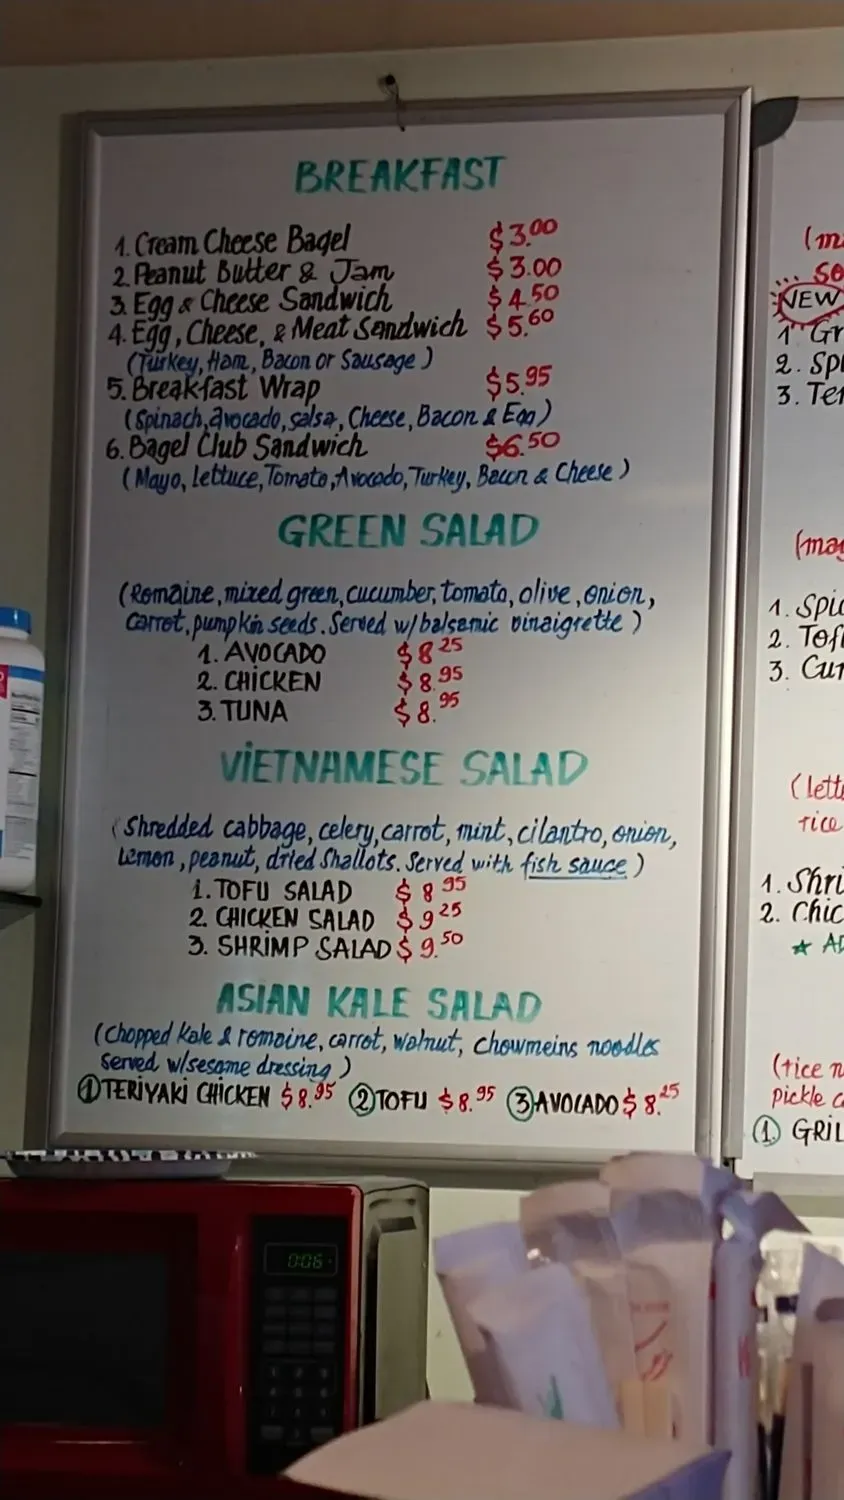 BREAKFAST
1. Cream Cheese Bagel $3.00
2. Peanut Butter & Jam $3.00
3. Egg & Cheese Sandwich $4.50
4. Egg, Cheese, & Meat Sandwich $5.60
(Turkey, Ham, Bacon or Sausage)
5. Breakfast Wrap $5.95
(Spinach, avocado, salsa, Cheese, Bacon & Egg)
6. Bagel Club Sandwich $6.50
(Mayo, Lettuce, Tomato, Avocado, Turkey, Bacon & Cheese)
GREEN SALAD
(Romaine, mixed green, cucumber, tomato, olive, onion,
carrot, pumpkin seeds. Served w/balsamic vinaigrette)
1. AVOCADO $8.25
2. CHICKEN $8.95
3. TUNA $8.95
VIETNAMESE SALAD
(Shredded cabbage, celery, carrot, mint, cilantro, onion,
Lemon, peanut, dried Shallots. Served with fish sauce)
1. TOFU SALAD $8.95
2. CHICKEN SALAD $9.25
3. SHRIMP SALAD $9.50
ASIAN KALE SALAD
(Chopped Kale & romaine, carrot, walnut, Chowmeins noodles
served w/sesame dressing)
1 TERIYAKI CHICKEN $8.95 2 TOFU $8.95 3 AVOCADO $8.25
NEW
1. Gr
2. Spi
3. Ter
1. Spic
2. Tof
3. Cur
(lett
rice
1. Shri
2. Chic
(rice n
pickle c
1. GRIL
0:06